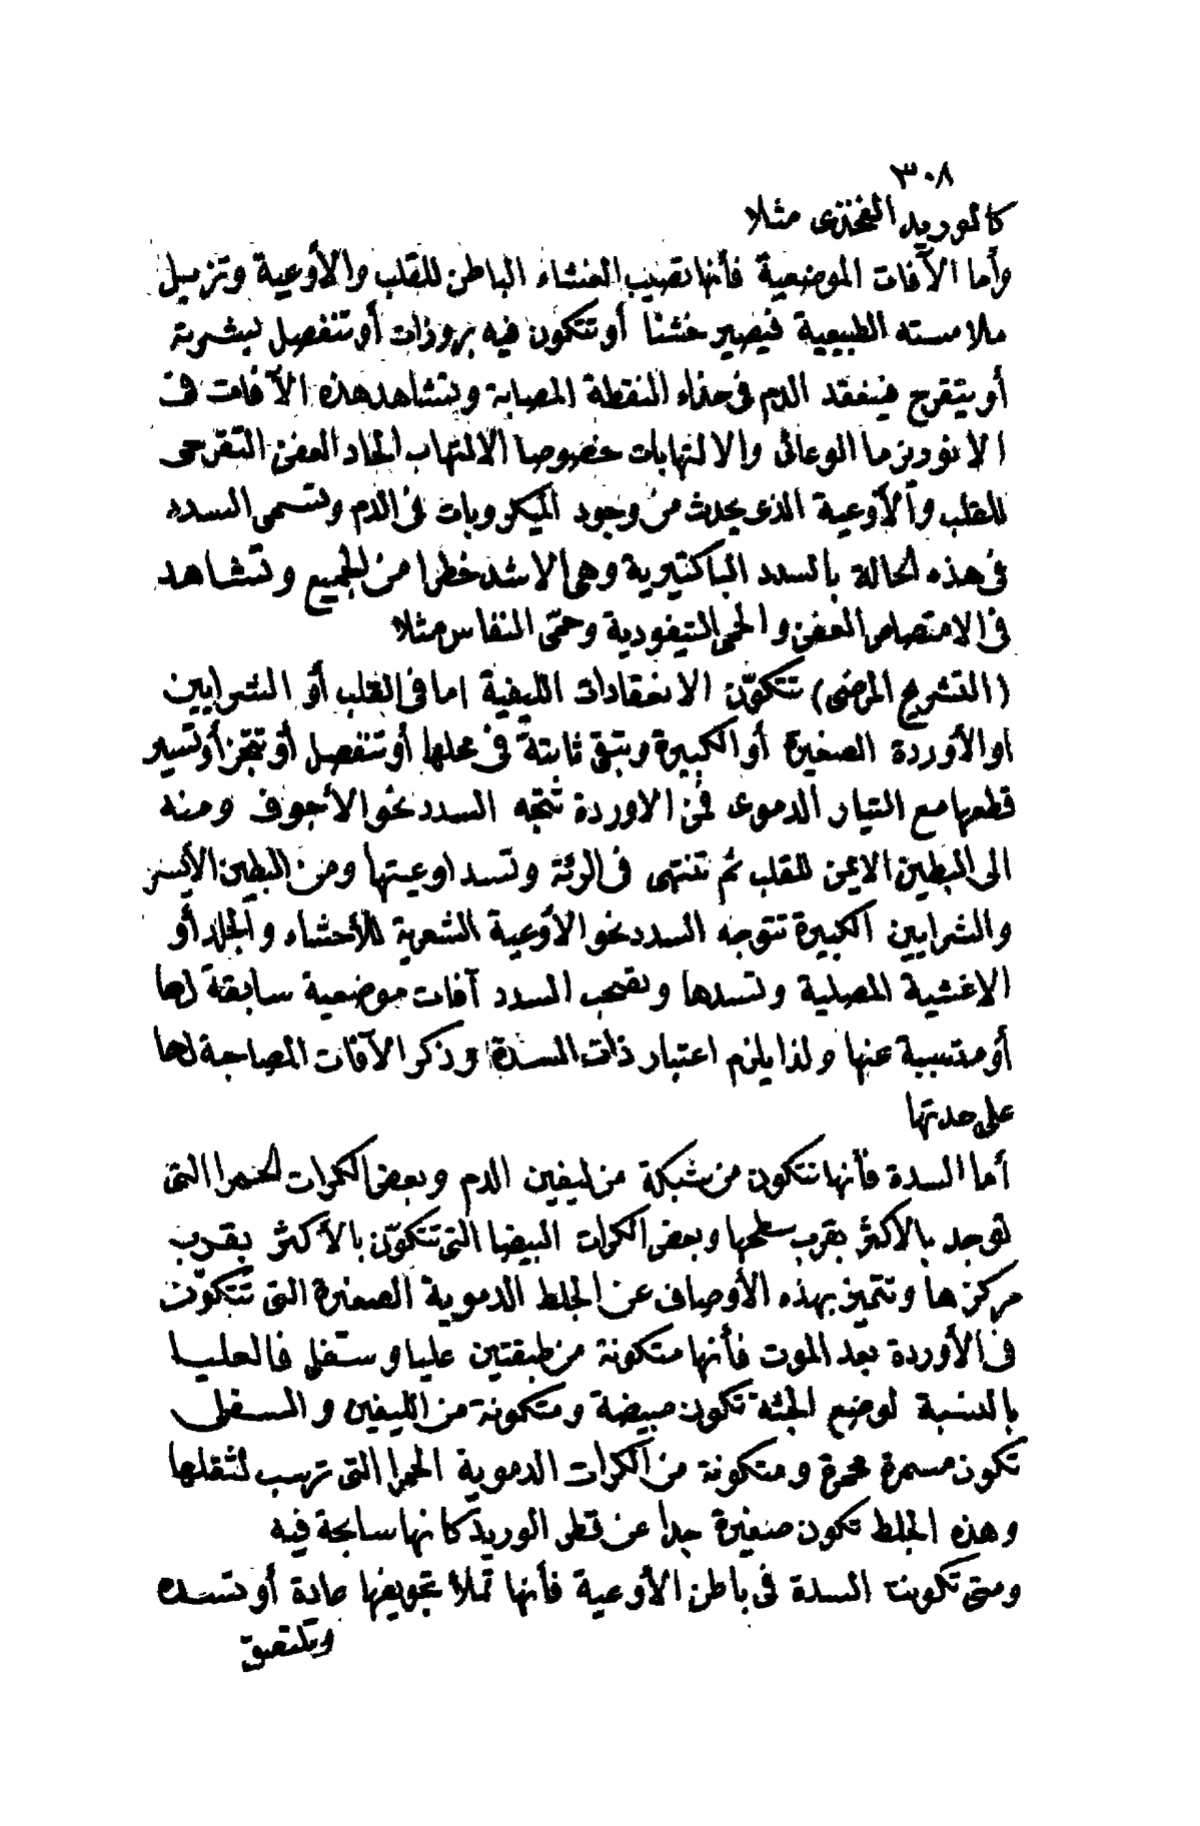 ٣٠٨
كالوريد الفخذى مثلا
وأما الآفات الموضعية فأنها تصيب الغشاء الباطن للقلب والأوعية وتزيل
ملامسته الطبيعية فيصير خشنا أو تتكون فيه بروزات أو تنفصل لبشرية
أو يتقرح فينعقد الدم فى حذاء النقطة المصابة وتشاهد هذه الآفات فى
الانورزما الوعائى والالتهابات خصوصا الالتهاب الحاد العفن التقرحى
للقلب والأوعية الذى يحدث من وجود الميكروبات فى الدم وتسمى السدد
فى هذه الحالة بالسدد الباكتيرية وهى الاشد خطرا من الجميع وتشاهد
فى الامتصاص العفن والحمى التيفودية وحمّى النفاس مثلا
(التشريح المرضى) تتكوّن الانعقادات الليفية اما فى القلب أو الشرايين
اوالأوردة الصغيرة أو الكبيرة وتبقى ثابتة فى محلها أو تنفصل أو تتجزأ وتسير
قطعها مع التيار الدموى فمن الاوردة تتجه السدد نحو الأجوف ومنه
الى البطين الايمن للقلب ثم تنتهى فى الرئة وتسد اوعيتها ومن البطين الأيسر
والشرايين الكبيرة تتوجه السدد نحو الأوعية الشعرية للأحشاء والجلد أو
الاغشية المصلية وتسدها وتصحب السدد آفات موضعية سابقة لها
أو متسببة عنها ولذا يلزم اعتبار ذات السدة وذكر الآفات المصاحبة لها
على حدتها
أما السدة فأنها تتكون من شبكة من ليفين الدم وبعض الكرات الحمرا التى
توجد بالأكثر بقرب سطحها وبعض الكرات البيضا التى تتكوّن بالأكثر بقرب
مركزها وتتميز بهذه الأوصاف عن الجلط الدموية الصغيرة التى تتكوّن
فى الأوردة بعد الموت فأنها متكونة من طبقتين عليا وسفلى فالعليا
بالنسبة لوضع الجثة تكون مبيضة ومتكونة من الليفين والسفلى
تكون مسمرة محمرة ومتكونة من الكرات الدموية الحمرا التى ترسب لثقلها
وهذه الجلط تكون صغيرة جدا عن قطر الوريد كانها سابحة فيه
ومتى تكونت السدة فى باطن الأوعية فأنها تملأ تجويفها عادة أو تسده
وتلتصق